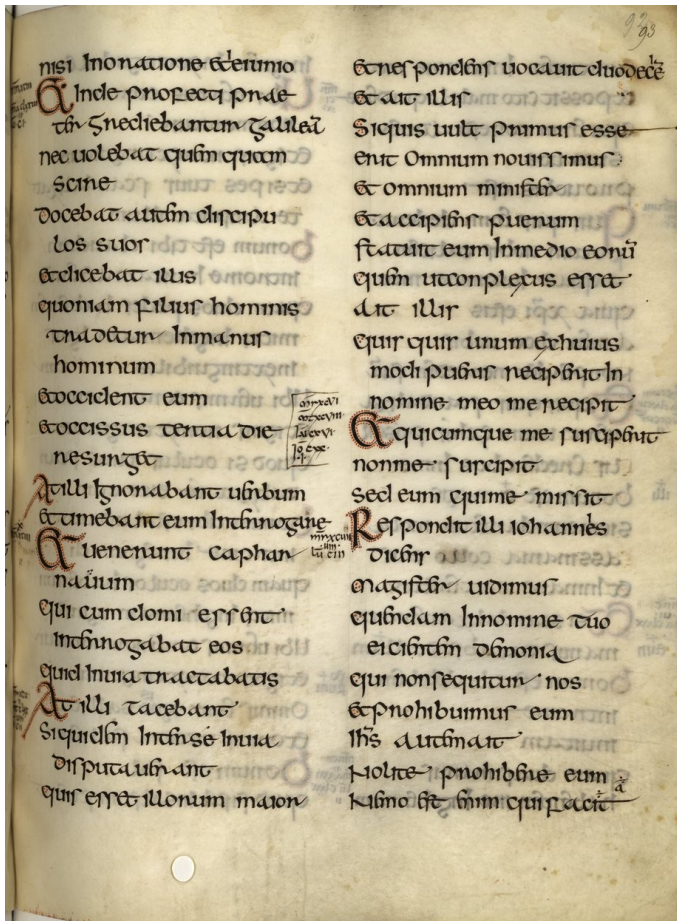 93
nisi In oratione & ieiunio
& Inde profecti prae
ter grediebantur galileā
nec uolebat quem quam
scire
docebat autem discipu
los suos
& dicebat illis
quoniam filius hominis
tradetur Inmanus
hominum
& occident eum
& occissus tertia die
resurg&
At illi Ignorabant uerbum
& timebant eum Interrogare
& uenerunt caphar
nauum
qui cum domi essent
Interrogabat eos
quid Inuia tractabatis
At illi tacebant
Siquidem Inter se Inuia
disputauerant
quis ess& illorum maior
& respondens uocauit duodecē
& ait illis
Siquis uult primus esse
erit Omnium nouissimus
& omnium minister
& accipiens puerum
statuit eum Inmedio eorū
quem utconplexus ess&
Ait illis
quis quis unum exhuius
modi pueris receperit In
nomine meo me recipit
& quicumque me susciperit
nonme suscipit
sed eum quime missit
Respondit illi iohannes
dicens
magister uidimus
quendam Innomine tuo
eicientem demonia
qui nonsequitur nos
& prohibuimus eum
Ihs̄ autem ait
Nolite prohibere eum
Nemo est enim qui facit